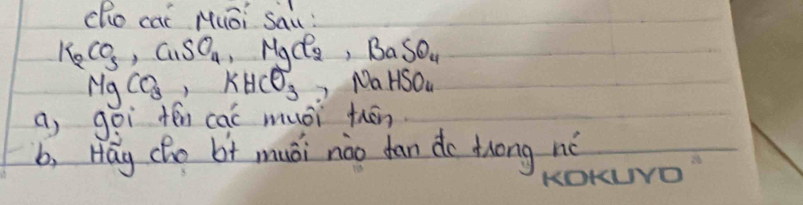 cho các Muối sau:
K₂CO₃, CuSO₄, MgCl₂, BaSO₄
MgCO₃, KHCO₃, NaHSO₄
a, gọi tên các muối trên.
b, Hãy cho bt muối nào tan đc trong nc
KOKUYO